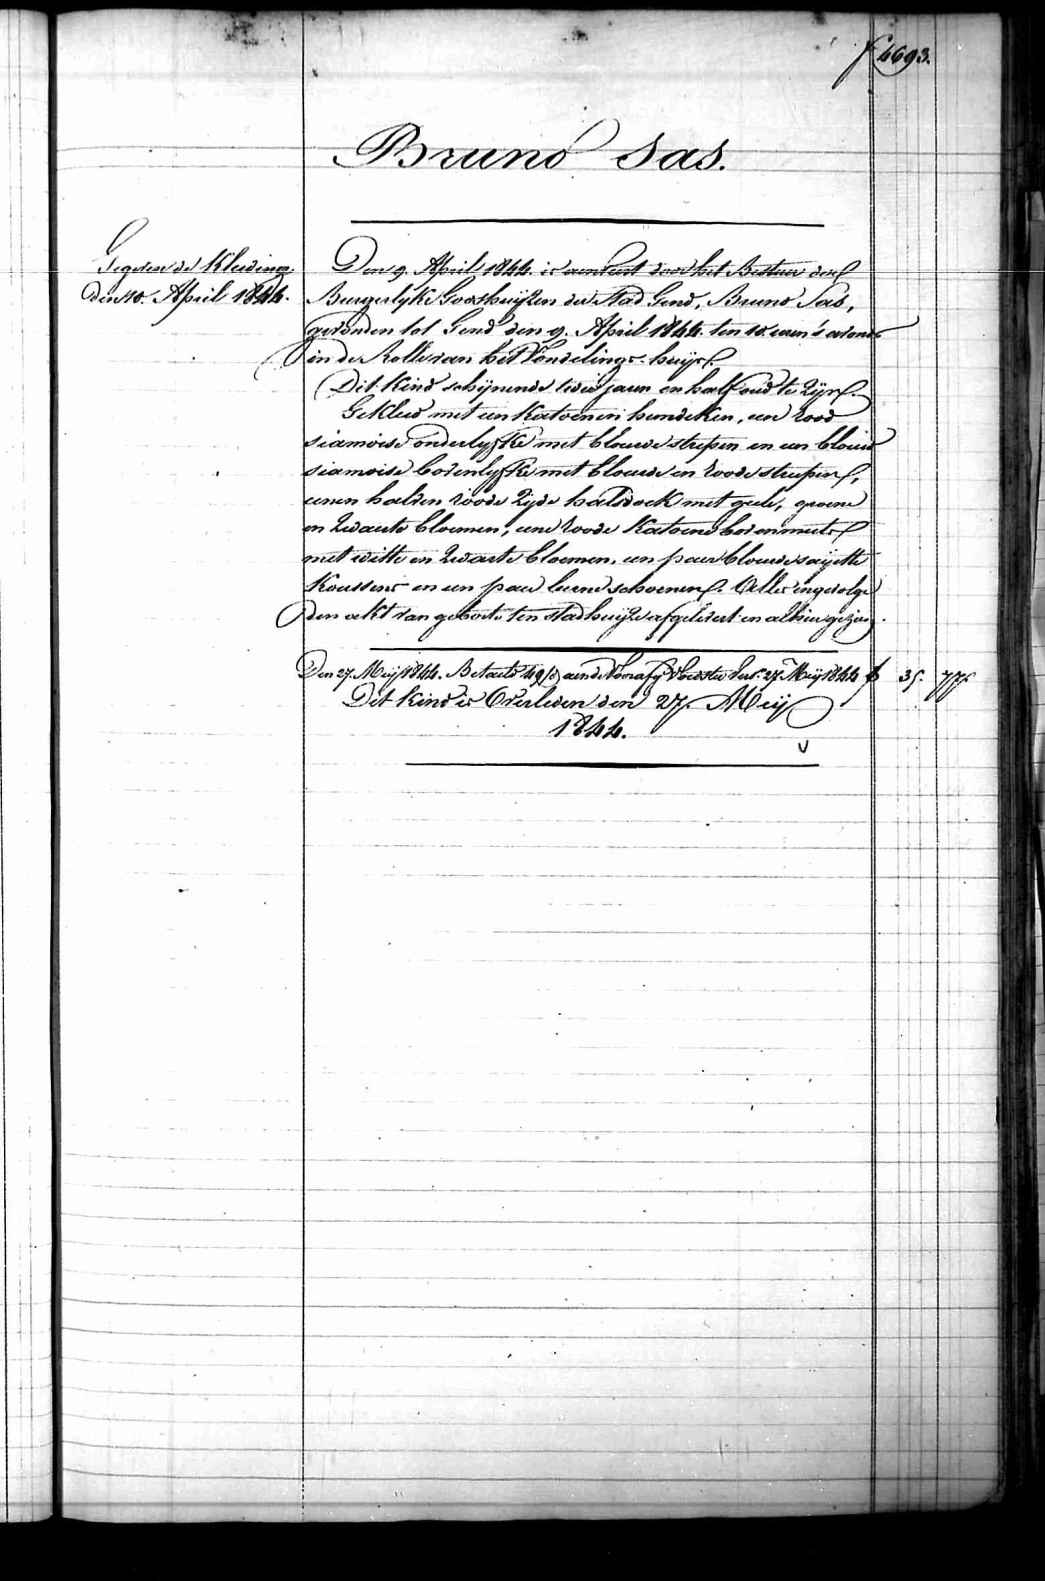 f 4693.
Bruno Sas.
Gegeven de Kleeding
den 10. April 1844.
Den 9. April 1844. is aenveert door het Bestuer der
Burgerlyke Godshuijzen der Stad Gend, Bruno Sas,
gevonden tot Gend den 9. April 1844. ten 10. uren 's avonds
in de Rolle van het Vondelings-huijs.
Dit Kind schijnende twee jaren en half oud te zijn.
Gekleed met een Katoenen hemdeken, een rood
siamoise onderlyfke met blauwe streepen en een blauw
siamoise bovenlyfke met blauwe en roode streepen,
eenen halven roode zyde halsdoek met geele, groene
en zwarte bloemen, eene roode Katoene bovenmuts
met witte en zwarte bloemen, een paer blauwe sayette
Koussens en een paer leere schoenen. Alles ingevolge
den akt van geboorte ten stadhuijze afgeleverd en alhier gezien.
Den 27. Meij 1844. Betaeld 49/s aen de Voedster tot 27. Meij 1844 f 35. 77.
Dit Kind is Overleden den 27. Meij
1844.